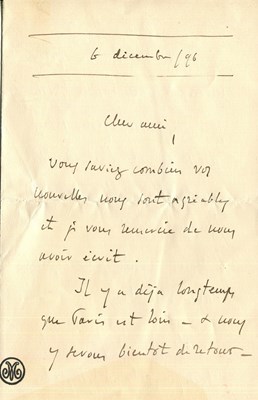 6 décembre/96
Cher ami,
Vous saviez combien vos
nouvelles nous sont agréables
et je vous remercie de nous
avoir écrit.
Il y a déjà longtemps
que Paris est loin – & nous
y serons bientôt de retour –